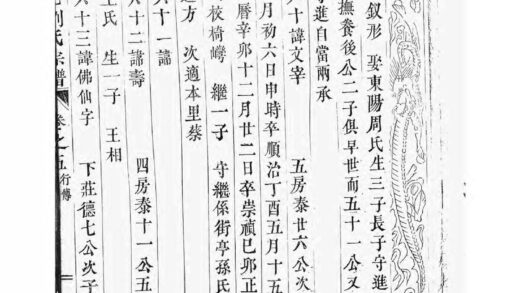 釵形 娶東陽周氏生三子長子守進
撫養後公二子俱早世而五十一公又
守進自當兩承
十諱文宰 五房泰廿六公次
月初六日申時卒順治丁酉五月十五
曆辛卯十二月廿二日卒崇禎己卯正
繼一子 守繼係街亭孫氏
方 次適本里蔡
十一諱
十二諱壽 四房泰十一公五
氏 生一子 王相
十三諱佛仙字 下莊德七公次子
劉氏宗譜 卷之五 行傳